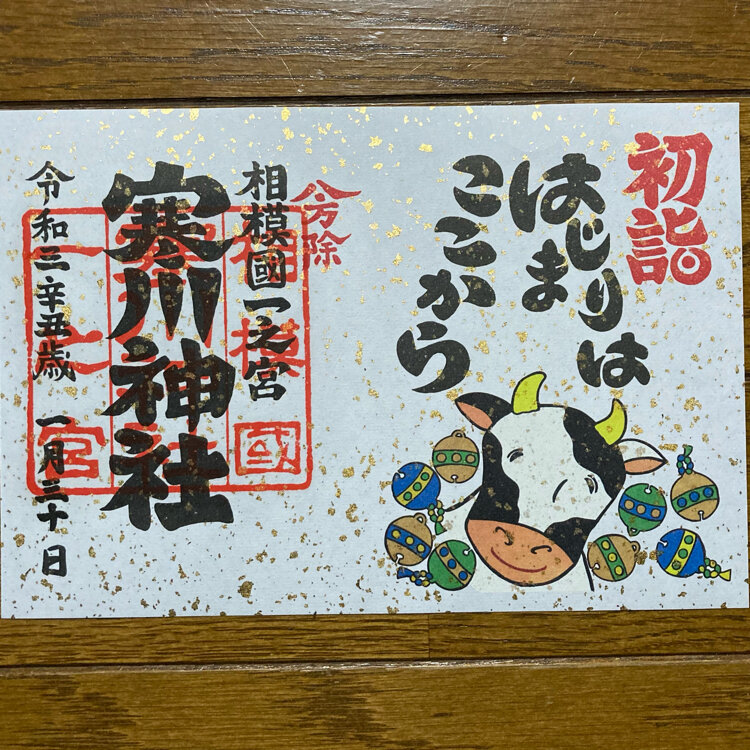 初詣
はじまりは
ここから
八方除
相模國一之宮
寒川神社
令和三辛丑歳 一月三十日